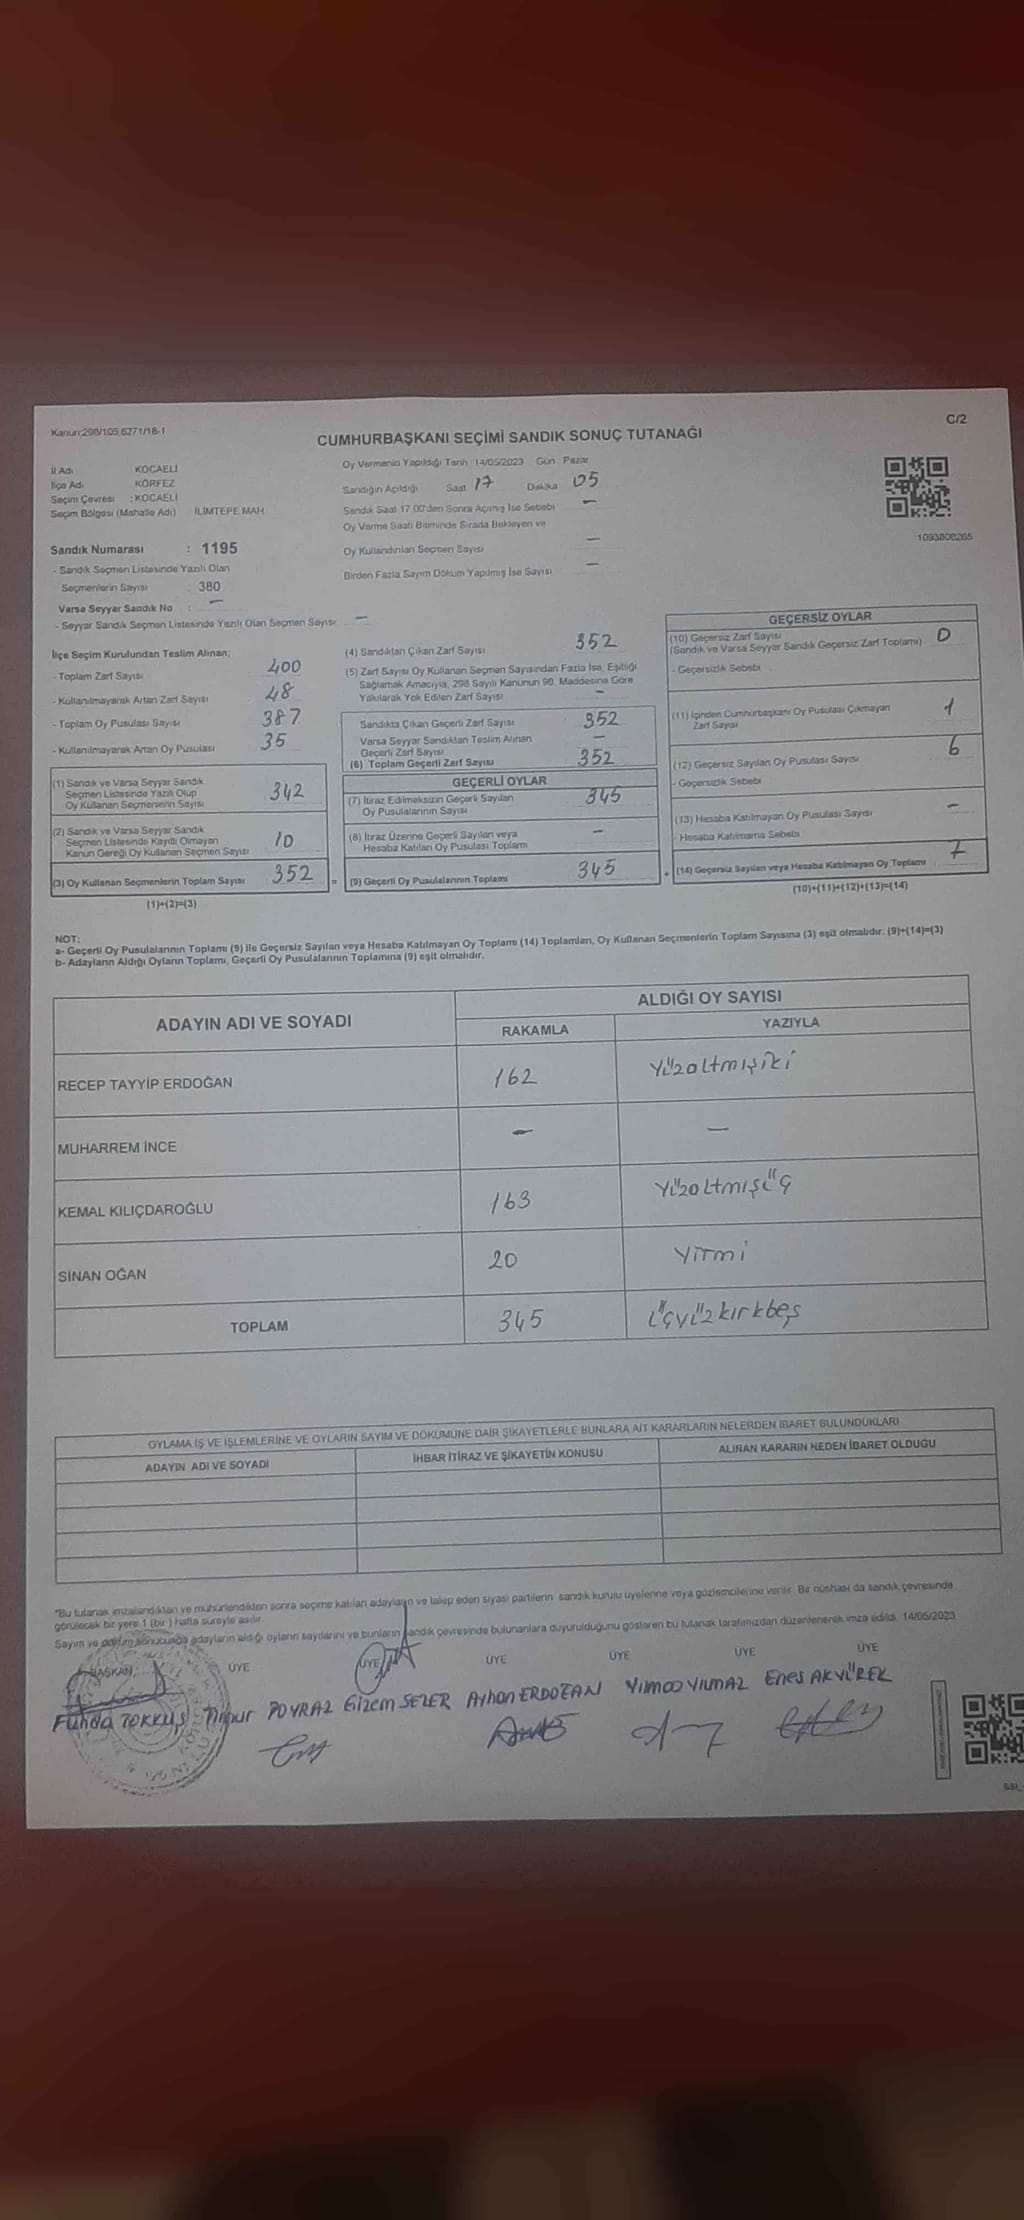 Kanun:298/105,6271/18-1
C/2
CUMHURBAŞKANI SEÇİMİ SANDIK SONUÇ TUTANAĞI
İl Adı KOCAELİ
İlçe Adı KÖRFEZ
Seçim Çevresi : KOCAELİ
Seçim Bölgesi (Mahalle Adı) İLİMTEPE MAH.
Sandık Numarası : 1195
- Sandık Seçmen Listesinde Yazılı Olan
Seçmenlerin Sayısı : 380
Varsa Seyyar Sandık No : —
- Seyyar Sandık Seçmen Listesinde Yazılı Olan Seçmen Sayısı —
Oy Vermenin Yapıldığı Tarih : 14/05/2023 Gün : Pazar
Sandığın Açıldığı Saat 17 Dakika 05
Sandık Saat 17.00'den Sonra Açılmış İse Sebebi —
Oy Verme Saati Bitiminde Sırada Bekleyen ve
Oy Kullandırılan Seçmen Sayısı —
Birden Fazla Sayım Döküm Yapılmış İse Sayısı —
1093808265
İlçe Seçim Kurulundan Teslim Alınan;
- Toplam Zarf Sayısı 400
- Kullanılmayarak Artan Zarf Sayısı 48
- Toplam Oy Pusulası Sayısı 387
- Kullanılmayarak Artan Oy Pusulası 35
(1) Sandık ve Varsa Seyyar Sandık
Seçmen Listesinde Yazılı Olup
Oy Kullanan Seçmenlerin Sayısı 342
(2) Sandık ve Varsa Seyyar Sandık
Seçmen Listesinde Kayıtlı Olmayan
Kanun Gereği Oy Kullanan Seçmen Sayısı 10
(3) Oy Kullanan Seçmenlerin Toplam Sayısı 352
(1)+(2)=(3)
(4) Sandıktan Çıkan Zarf Sayısı 352
(5) Zarf Sayısı Oy Kullanan Seçmen Sayısından Fazla İse, Eşitliği
Sağlamak Amacıyla, 298 Sayılı Kanunun 98. Maddesine Göre
Yakılarak Yok Edilen Zarf Sayısı —
Sandıkta Çıkan Geçerli Zarf Sayısı 352
Varsa Seyyar Sandıktan Teslim Alınan
Geçerli Zarf Sayısı —
(6) Toplam Geçerli Zarf Sayısı 352
GEÇERLİ OYLAR
(7) İtiraz Edilmeksizin Geçerli Sayılan
Oy Pusulalarının Sayısı 345
(8) İtiraz Üzerine Geçerli Sayılan veya
Hesaba Katılan Oy Pusulası Toplamı —
= (9) Geçerli Oy Pusulalarının Toplamı 345
GEÇERSİZ OYLAR
(10) Geçersiz Zarf Sayısı
(Sandık ve Varsa Seyyar Sandık Geçersiz Zarf Toplamı) 0
- Geçersizlik Sebebi
(11) İçinden Cumhurbaşkanı Oy Pusulası Çıkmayan
Zarf Sayısı 1
(12) Geçersiz Sayılan Oy Pusulası Sayısı 6
- Geçersizlik Sebebi
(13) Hesaba Katılmayan Oy Pusulası Sayısı —
- Hesaba Katılmama Sebebi
+ (14) Geçersiz Sayılan veya Hesaba Katılmayan Oy Toplamı 7
(10)+(11)+(12)+(13)=(14)
NOT:
a- Geçerli Oy Pusulalarının Toplamı (9) ile Geçersiz Sayılan veya Hesaba Katılmayan Oy Toplamı (14) Toplamları, Oy Kullanan Seçmenlerin Toplam Sayısına (3) eşit olmalıdır. (9)+(14)=(3)
b- Adayların Aldığı Oyların Toplamı, Geçerli Oy Pusulalarının Toplamına (9) eşit olmalıdır.
ADAYIN ADI VE SOYADI
ALDIĞI OY SAYISI
RAKAMLA YAZIYLA
RECEP TAYYİP ERDOĞAN 162 Yüzaltmışiki
MUHARREM İNCE — —
KEMAL KILIÇDAROĞLU 163 Yüzaltmışüç
SİNAN OĞAN 20 Yirmi
TOPLAM 345 Üçyüzkırkbeş
OYLAMA İŞ VE İŞLEMLERİNE VE OYLARIN SAYIM VE DÖKÜMÜNE DAİR ŞİKAYETLERLE BUNLARA AİT KARARLARIN NELERDEN İBARET BULUNDUKLARI
ADAYIN ADI VE SOYADI İHBAR İTİRAZ VE ŞİKAYETİN KONUSU ALINAN KARARIN NEDEN İBARET OLDUĞU
*Bu tutanak imzalandıktan ve mühürlendikten sonra seçime katılan adayların ve talep eden siyasi partilerin sandık kurulu üyelerine veya gözlemcilerine verilir. Bir nüshası da sandık çevresinde
görülecek bir yere 1 (bir) hafta süreyle asılır.
Sayım ve döküm sonucunda adayların aldığı oyların sayılarını ve bunların sandık çevresinde bulunanlara duyurulduğunu gösteren bu tutanak tarafımızdan düzenlenerek imza edildi. 14/05/2023
BAŞKAN ÜYE ÜYE ÜYE ÜYE ÜYE ÜYE
Funda TOKKUŞ Timur POYRAZ Gizem SEZER Ayhan ERDOĞAN Yılmaz YILMAZ Enes AKYÜREK